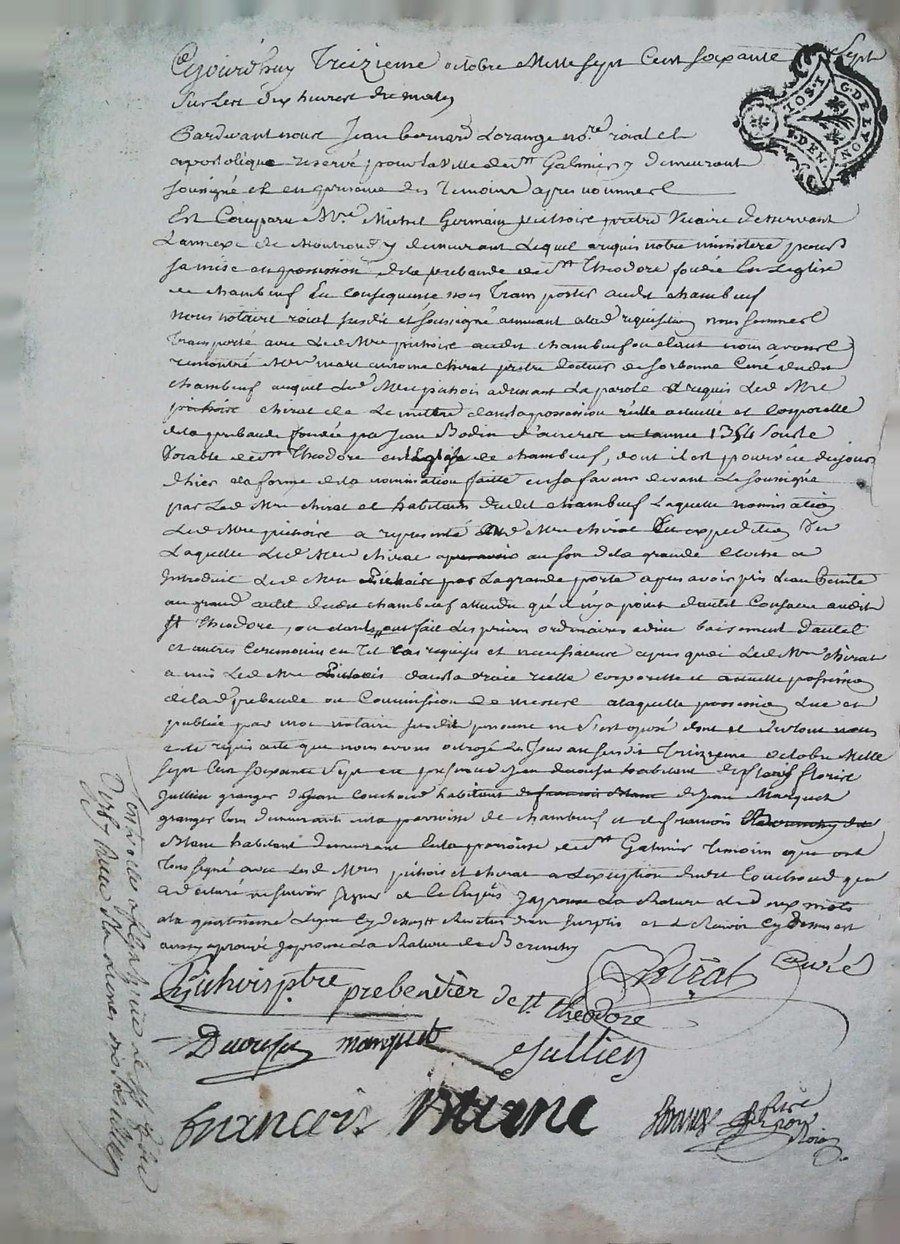 Cejourd'huy Treizieme octobre Mille sept Cent soixante sept
sur les dix heures du matin
Pardevant nous Jean Bernard Lorange nore roial et
apostolique reservé pour la ville de st Galmier y demeurant
soussigné et en presence des temoins apres nommes
Est Comparu Mre Michel Germain pichoire pretre Vicaire desservant
L'annexe de Montrond y demeurant Lequel a requis notre ministere pour
sa mise en possession de la prebande de st Theodore fondée en L'eglise
de chambeuf En consequence nous Transporter audit chambeuf
Nous notaire roial susdit et soussigné a la requisition nous sommes
Transporté avec Led Mre pichoire audit chambeuf ou etant nous avons
rencontré Mre marc antoine chirat pretre docteur de sorbonne Curé dudit
chambeuf auquel Led Mre pichois adressant La parole a requis Led Mre
pichoire chirat de Le mettre dans la possession réelle actuelle et corporelle
de la prebande fondée par Jean Bodin en l'année 1354 sous le
Vocable de st Theodore en L'Eglise de chambeuf, dont il est pourvu du jour
d'hier a la forme de la nomination faitte en sa faveur devant Le soussigné
par Led Mre chirat et habitans dudit chambeuf Laquelle nomination
Led Mre pichoire a representé aud Mre chirat En expedition Vu
Laquelle Led Mre chirat au son de la grande cloche a
introduit Led Mre Pichoire par La grande porte apres avoir pris L'eau benite
au grand autel dudit chambeuf attendu qu'il n'y a point d'autel Consacré audit
st Theodore, ou etants ont fait Les prieres ordinaires baisement d'autel
et autres Ceremonies en Tel Cas requises et necessaires apres quoi Led Mre chirat
a mis Led Mre Pichois dans la vraie réelle corporelle et actuelle possession
de lad prebande ou Commission de messes a laquelle possession Lue et
publiée par moi notaire susdit personne ne s'est oposé dont et du tout nous
a eté requis acte que nous avons octroyé Les Jour an susdit Treizieme octobre Mille
sept Cent soixante sept en presence habitant
Jullien granger de Jean Couchoud habitant de francois Blanc de Jean Marquet
granger tous demeurant en la parroisse de chambeuf et de francois
Blanc habitant demeurant en la parroisse de st Galmier Temoins que ont
tous signé avec Lesd Mres pichois et chirat a L'exception dudit Couchoud qui
a declaré ne savoir signer de ce enquis J'aprouve La Rature de deux mots
a la quatorzieme Ligne cy dessus et Le Renvoi cy dessus est
aussy aprouvé J'aprouve La Rature de
Pichoirs ptre prebendier de st theodore
Chirat Curé
marquet
Jullien
françois Blanc